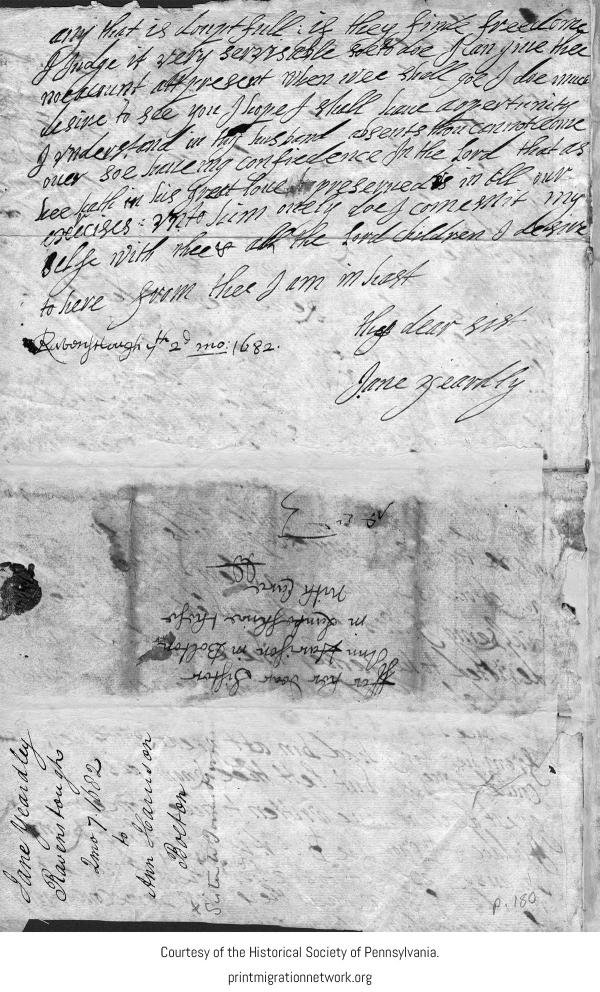 any that is doughtfull: is they finde freedome
I Judge it very servisable soe to doe I can give thee
noe acount att present when wee shall goe I doe much
desire to see you I hope I shall have oppertunity
I understand in thy husband absents thou cannot come
over soe haveing confiedence In the Lord that as
hee hath in his great Love preserved us in all our
exercises: unto him onely doe I comemit my
selfe with thee & all the Lord children I desire
to here from thee I am in hast
Thy dear sist
Ravensthough 2d mo: 1682.
Jane yeardly
with Care
in Lankeshaire these
Ann Harrison in Bolton
for her dear Sister
Jane Yeardley
Ravenstough
2mo 7 1682
to
Ann Harrison
Bolton
p. 180
Courtesy of the Historical Society of Pennsylvania.
printmigrationnetwork.org